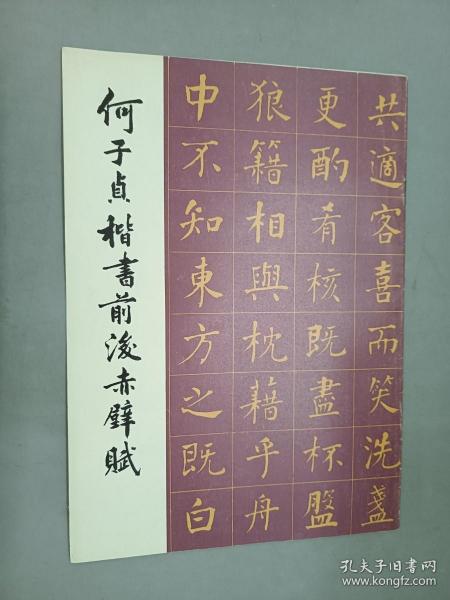 何子貞楷書前後赤壁賦
共適客喜而笑洗盞
更酌肴核既盡杯盤
狼籍相與枕藉乎舟
中不知東方之既白
孔夫子旧书网
www.kongfz.com